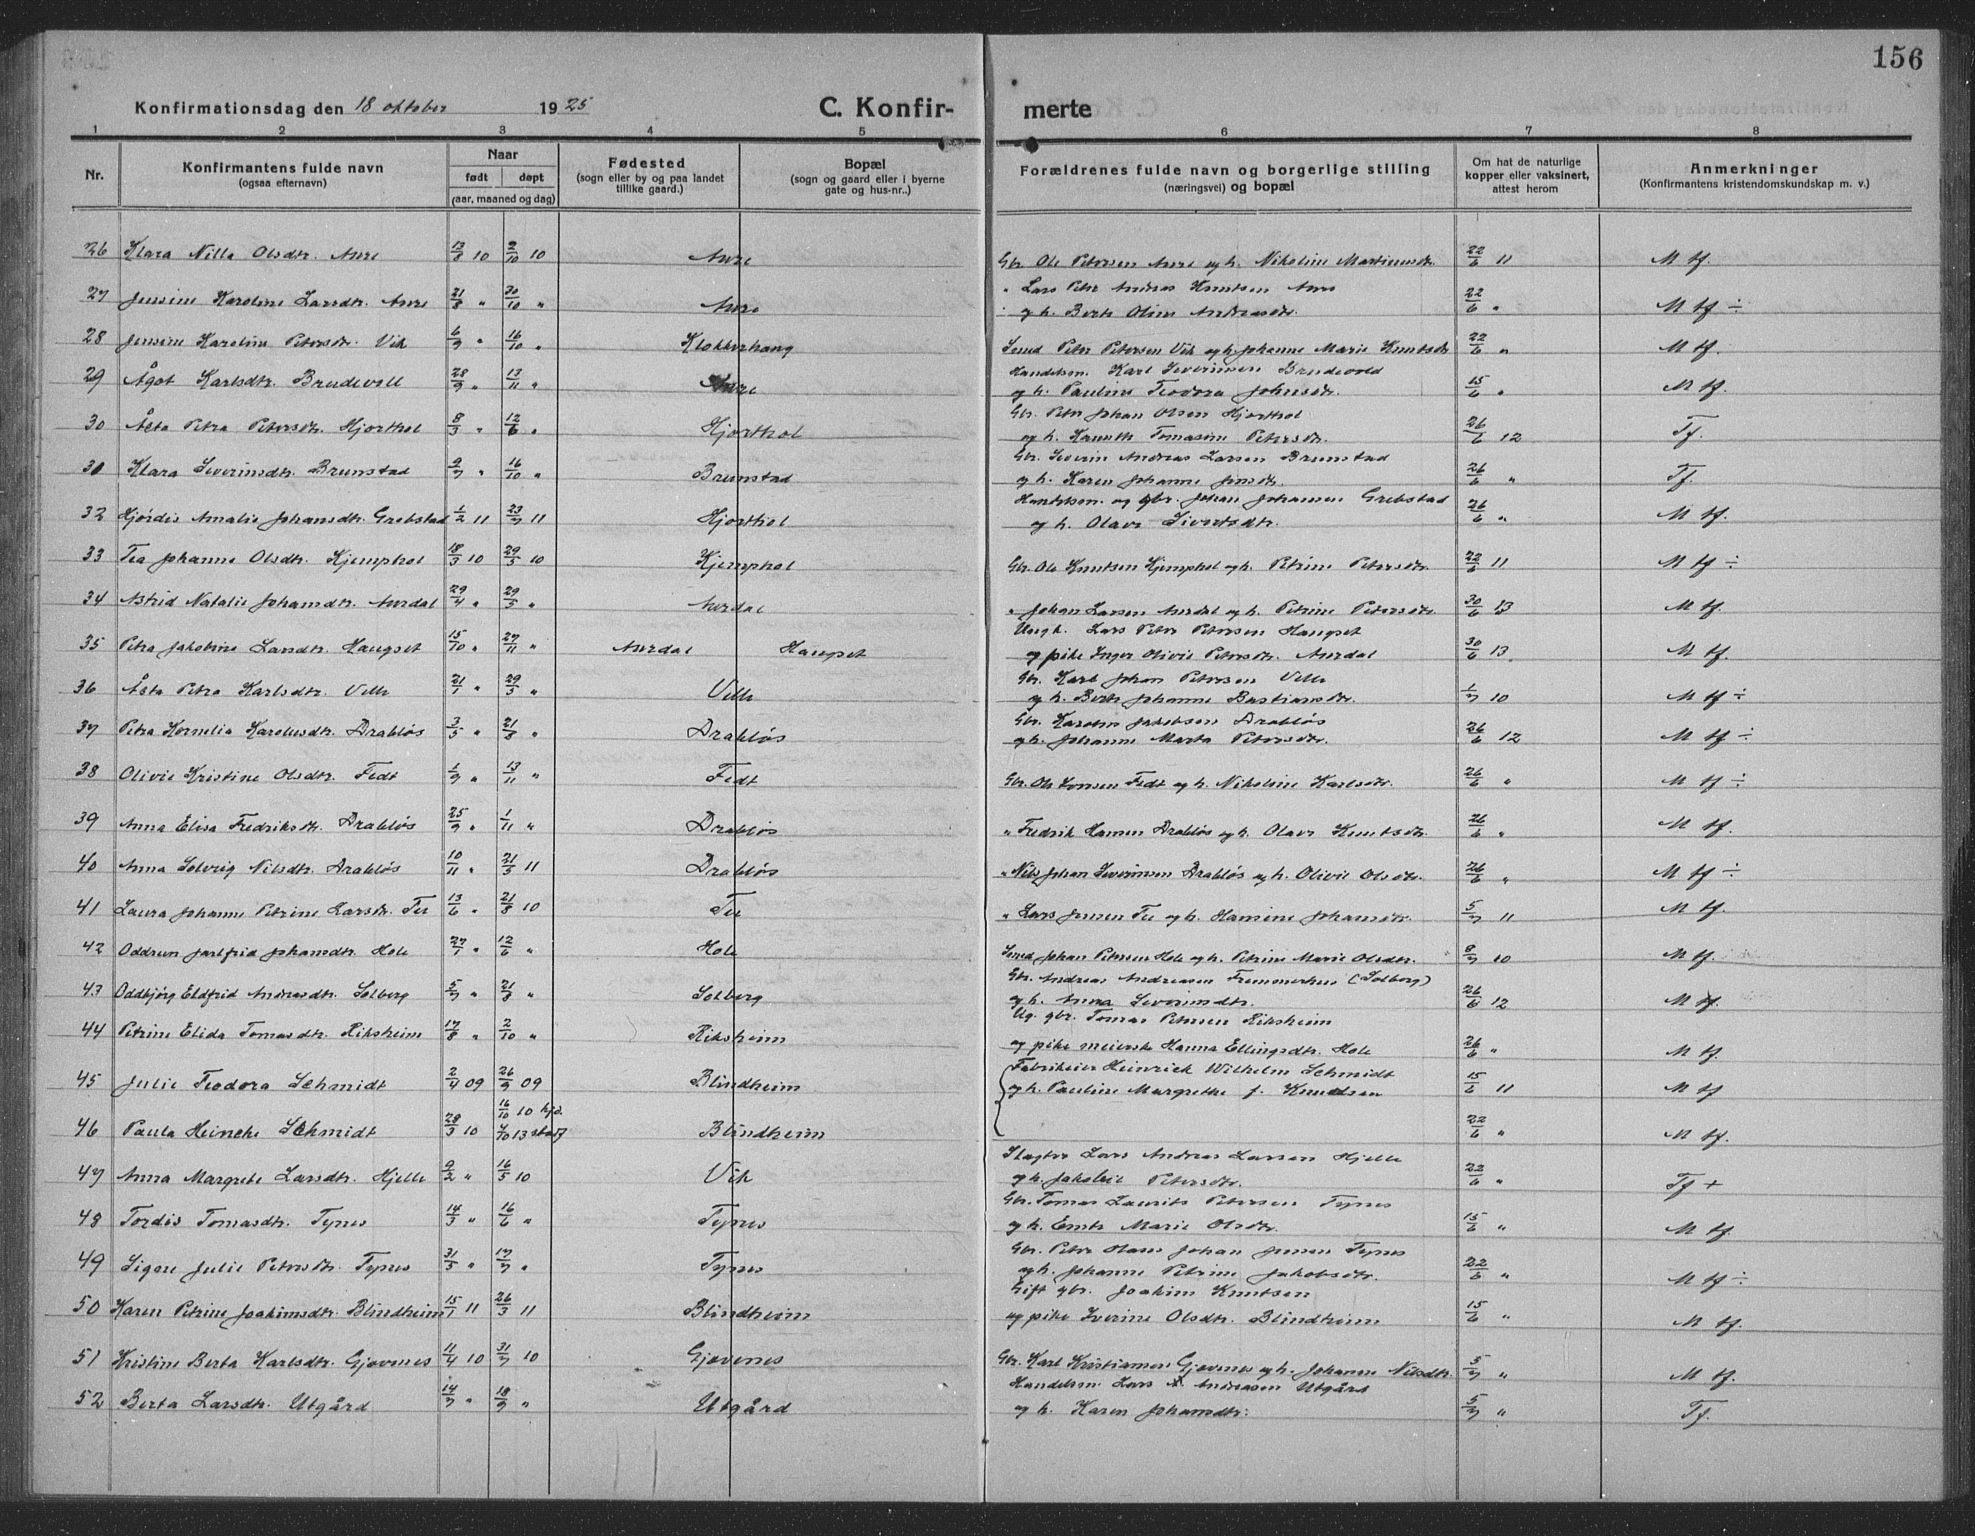 156
Konfirmationsdag den 18 oktober 1925 C. Konfirmerte
1 2 3 4 5 6 7 8
Nr. Konfirmantens fulde navn (ogsaa efternavn) Naar født døpt (aar, maaned og dag) Fødested (sogn eller by og paa landet tillike gaard.) Bopæl (sogn og gaard eller i byerne gate og hus-nr..) Forældrenes fulde navn og borgerlige stilling (næringsvei) og bopæl Om hat de naturlige kopper eller vaksinert, attest herom Anmerkninger (Konfirmantens kristendomskundskap m. v.)
26 Klara Nilla Olsdtr. Aure 13/8 10 2/10 10 Aure Gbr. Ole Petersen Aure og h. Nikoline Martinusdtr. 22/6 11 M tf.
27 Jensine Karoline Larsdtr. Aure 21/8 " 30/10 " Aure " Lars Petr Andreas Knutsen Aure
og h. Berte Oline Andreasdtr. 22/6 " M tf ÷
28 Jensine Karoline Petersdtr. Vik 6/9 " 16/10 " Klokkerhaug Smed Peter Petersen Vik og h. Johanne Marie Knutsdtr 22/6 " M tf.
29 Ågot Karlsdtr. Brudevoll 28/9 " 13/11 " Aure Handelsm. Karl Severinsen Brudevold
og h. Pauline Teodora Johnsdtr. 15/6 " M tf.
30 Åsta Petra Petersdtr. Hjorthol 8/3 " 12/6 " Hjorthol Gbr. Petr Johan Olsen Hjorthol
og h. Tomasine Petersdtr. 26/6 12 Tf.
31 Klara Severinsdtr. Brunstad 9/7 " 16/10 " Brunstad Gbr. Severin Andreas Larsen Brunstad
og h. Karen Johanne Jensdtr. 26/6 " Tf.
32 Hjördis Amalie Johansdtr. Grebstad 1/2 11 23/7 11 Hjorthol Handelsm. og gbr. Johan Johansen Grebstad
og h. Olave Sivertsdtr. 26/6 " M tf.
33 Tea Johanne Olsdtr. Kjemphol 18/3 10 29/5 10 Kjemphol Gbr. Ole Knutsen Kjemphol og h. Petrine Petersdtr. 22/6 11 M tf ÷
34 Astrid Natalie Johansdtr. Aurdal 29/4 " 29/5 " Aurdal " Johan Larsen Aurdal og h. Petrine Petersdtr. 30/6 13 M tf.
35 Petra Jakobine Larsdtr. Haugset 15/10 " 27/11 " Aurdal Haugset Ungk. Lars Peter Petersen Haugset
og pike Inger Olivie Petersdtr. Aurdal 30/6 13. M tf.
36 Åsta Petra Karlsdtr. Velle 21/1 " 29/5 " Velle Gbr. Karl Johan Petersen Velle
og h. Berte Johanne Bastiansdtr. 1/7 10 M tf ÷
37 Petra Kornelia Karolusdtr. Drabløs 3/5 " 21/8 " Drabløs Gbr. Karolus Jakobsen Drabløs
og h. Johanne Marta Petersdtr. 26/6 12 M tf ÷
38 Olivie Kristine Olsdtr. Fedt 1/9 " 13/11 " Fedt Gbr. Ole Fedt og h. Nikoline Karlsdtr. 26/6 " M tf ÷
39 Anna Elisa Fredriksdtr. Drabløs 25/9 " 1/11 " Drabløs " Fredrik Hansen Drabløs og h. Olave Knutsdtr. 26/6 " M tf.
40 Anna Solveig Nilsdtr. Drabløs 10/11 " 21/5 11 Drabløs " Nils Johan Severinsen Drabløs og h. Olivie Olsdtr. 26/6 " M tf ÷
41 Laura Johanne Petrine Larsdtr. Tu 13/6 " 21/8 10 Tu " Lars Jensen Tu og h. Hansine Johansdtr. 5/7 11 M tf.
42 Oddrun Jarlfrid Johansdtr. Hole 27/7 " 12/6 " Hole Smed Johan Petersen Hole og h. Petrine Marie Olsdtr. 8/7 10 M tf.
43 Oddbjörg Eldfrid Andreasdtr. Solberg 5/7 " 21/8 " Solberg Gbr. Andreas Andreasen Fremmerhus (Solberg)
og h. Anna Severinsdtr. 26/6 12 M tf.
44 Petrine Elida Tomasdtr. Riksheim 17/8 " 2/10 " Riksheim Ug. gbr. Tomas Petersen Riksheim
og pike meierske Hanna Ellingsdtr. Hole 26/6 " M tf
45 Julie Teodora Schmidt 2/4 09 26/9 09 Blindheim Fabrikeier Heinrich Wilhelm Schmidt
og h. Pauline Margrethe f. Knudsen 15/6 11 M tf
46 Paula Heincke Schmidt 28/3 10 16/10 10 hjd. Blindheim 22/6 " M tf.
47 Anna Margrete Larsdtr. Hjelle 9/2 " 16/5 10 Vik Slagter Lars Andreas Larsen Hjelle
og h. Petersdtr. 22/6 " Tf +
48 Tordis Tomasdtr. Tynes 14/3 " 16/6 " Tynes Gbr. Tomas Laurits Petersen Tynes
og h. Marie Olsdtr. 15/6 " M tf.
49 Julie Petersdtr. Tynes 31/5 " 17/7 " Tynes Gbr. Petr Johan Jensen Tynes
og h. Johanne Petrine Jakobsdtr. 22/6 " M tf ÷
50 Karen Petrine Joakimsdtr. Blindheim 15/1 11 26/3 11 Blindheim Gift gbr. Joakim Knutsen
og pike Iverine Olsdtr. Blindheim 15/6 " M tf.
51 Kristine Berta Karlsdtr. Gjævenes 11/4 10 31/7 10 Gjævenes Gbr. Karl Kristiansen Gjævenes og h. Johanne Nilsdtr. 5/7 " M tf.
52 Berta Larsdtr. Utgård 14/7 " 18/9 " Utgård Handelsm. Lars Andreasen Utgård
og h. Karen Johansdtr. 5/7 " Tf.